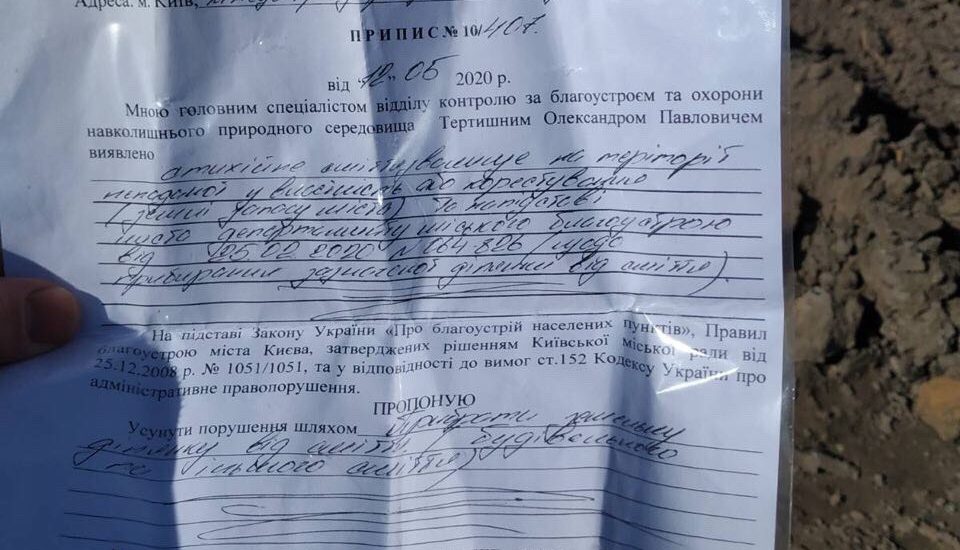 Адреса: м. Київ,
ПРИПИС № 10/407.
від "12" 05 2020 р.
Мною головним спеціалістом відділу контролю за благоустроєм та охорони
навколишнього природного середовища Тертишним Олександром Павловичем
виявлено
стихійне сміттєзвалище на території
неподаної у власність або користування
(землі запасу міста) На підставі
листа департаменту міського благоустрою
від 25.02.2020 № 064-826 (щодо
прибирання зазначеної ділянки від сміття)
На підставі Закону України «Про благоустрій населених пунктів», Правил
благоустрою міста Києва, затверджених рішенням Київської міської ради від
25.12.2008 р. № 1051/1051, та у відповідності до вимог ст.152 Кодексу України про
адміністративне правопорушення.
ПРОПОНУЮ
Усунути порушення шляхом Прибрати земельну
ділянку від сміття будівельного
та іншого сміття)